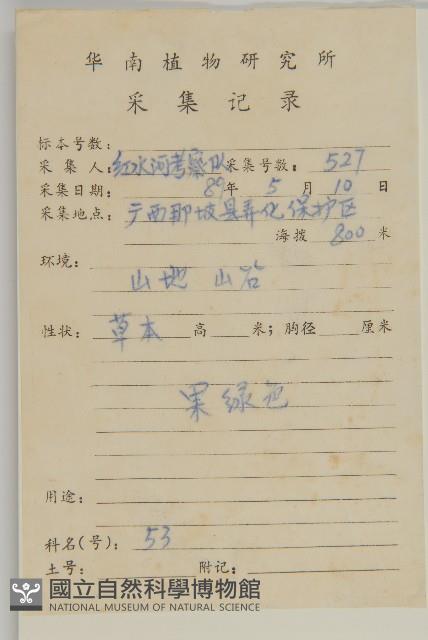 华南植物研究所
采集记录
标本号数：
采集人：红水河考察队采集号数：527
采集日期：89年5月10日
采集地点：广西那坡县弄化保护区
海拨800米
环境：
山地 山谷
性状：草本高 米；胸径 厘米
果绿色
用途：
科名(号)：53
土号： 附记：
國立自然科學博物館
NATIONAL MUSEUM OF NATURAL SCIENCE